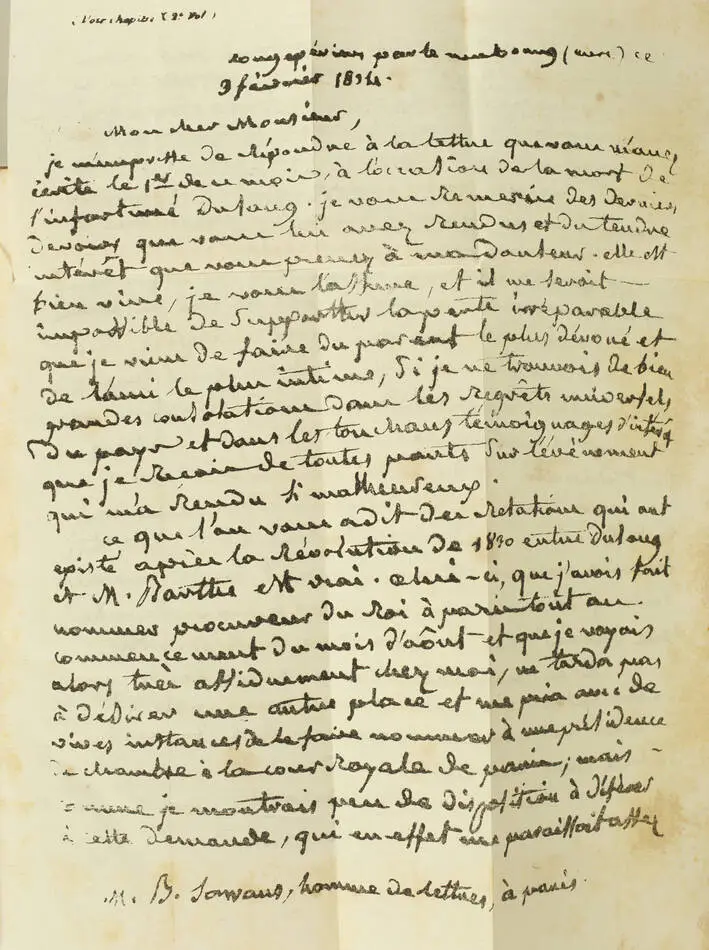 (Voir chapitre 2e Vol)
Rougepériers par le neubourg (eure) ce
9 février 1834.
Mon cher Monsieur,
je m'empresse de répondre à la lettre que vous m'avez
écrite le 1er de ce mois, à l'occasion de la mort de
l'infortuné Dulong. je vous remercie des derniers
devoirs que vous lui avez rendus et du tendre
intérêt que vous prenez à ma douleur. elle est
bien vive, je vous l'assure, et il me seroit
impossible de supporter la perte irréparable
que je viens de faire du parent le plus dévoué et
de l'ami le plus intime, si je ne trouvois de bien
grandes consolations dans les regrêts universels
du pays et dans les touchans témoignages d'intérêt
que je reçois de toutes parts sur l'évènement
qui m'a rendu si malheureux.
ce que l'on vous a dit des relations qui ont
existé après la révolution de 1830 entre Dulong
et M. Barthe est vrai. celui-ci, que j'avois fait
nommer procureur du Roi à paris tout au
commencement du mois d'août et que je voyais
alors très assiduement chez moi, ne tarda pas
à désirer une autre place et me pria avec de
vives instances de le faire nommer à une présidence
de chambre à la cour Royale de paris; mais
comme je montrais peu de disposition à déférer
à cette demande, qui en effet me paraissoit assez
M. B. Sarrans, homme de lettres, à paris.